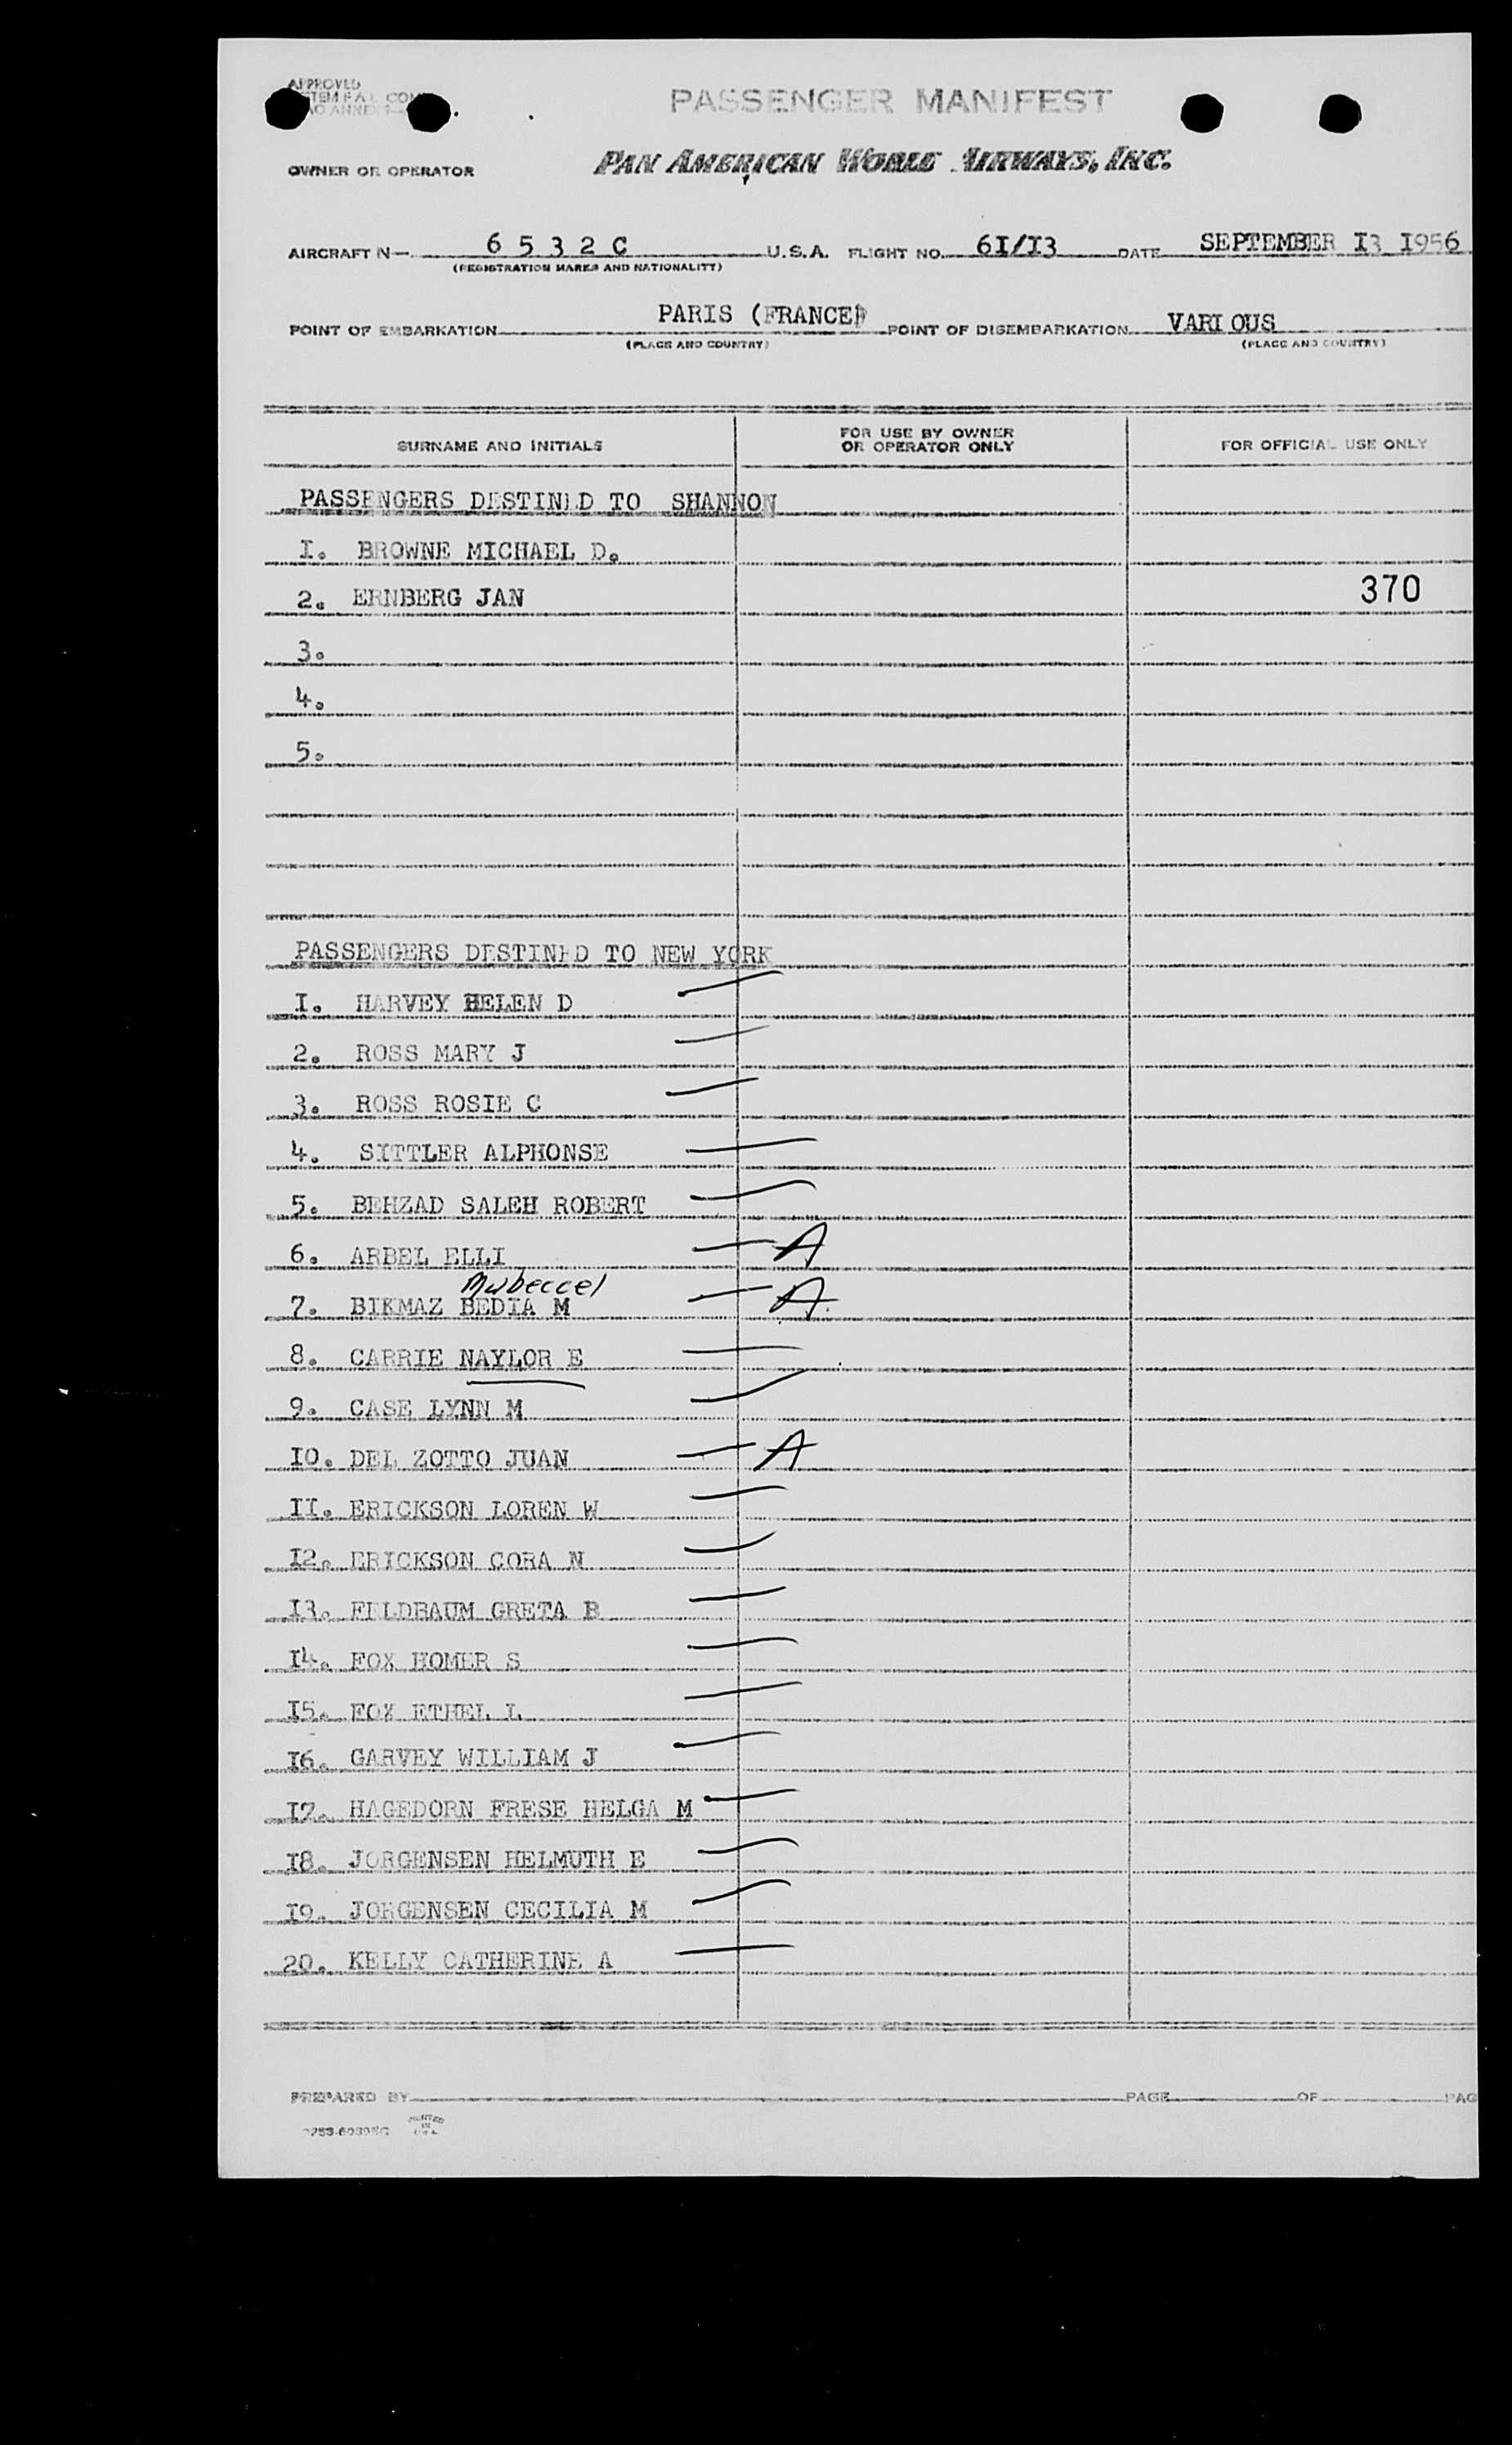 APPROVED
PASSENGER MANIFEST
OWNER OR OPERATOR PAN AMERICAN WORLD AIRWAYS, INC.
AIRCRAFT N— 6 5 3 2 C U.S.A. FLIGHT NO. 6I/I3 DATE SEPTEMBER I3 I956
(REGISTRATION MARKS AND NATIONALITY)
POINT OF EMBARKATION PARIS (FRANCE) POINT OF DISEMBARKATION VARIOUS
(PLACE AND COUNTRY) (PLACE AND COUNTRY)
SURNAME AND INITIALS FOR USE BY OWNER OR OPERATOR ONLY FOR OFFICIAL USE ONLY
PASSENGERS DESTINED TO SHANNON
I. BROWNE MICHAEL D.
2. ERNBERG JAN 370
3.
4.
5.
PASSENGERS DESTINED TO NEW YORK
I. HARVEY HELEN D
2. ROSS MARY J
3. ROSS ROSIE C
4. SITTLER ALPHONSE
5. BEHZAD SALEH ROBERT
6. ARBEL ELLI A
Mubeccel
7. BIKMAZ BEDIA M A
8. CARRIE NAYLOR E
9. CASE LYNN M
I0. DEL ZOTTO JUAN A
II. ERICKSON LOREN W
I2. ERICKSON CORA N
I3. FELDBAUM GRETA B
I4. FOX HOMER S
I5. FOX ETHEL L
I6. GARVEY WILLIAM J
I7. HAGEDORN FRESE HELGA M
I8. JORGENSEN HELMUTH E
I9. JORGENSEN CECILIA M
20. KELLY CATHERINE A
PREPARED BY PAGE OF PAG
PRINTED IN U.S.A.